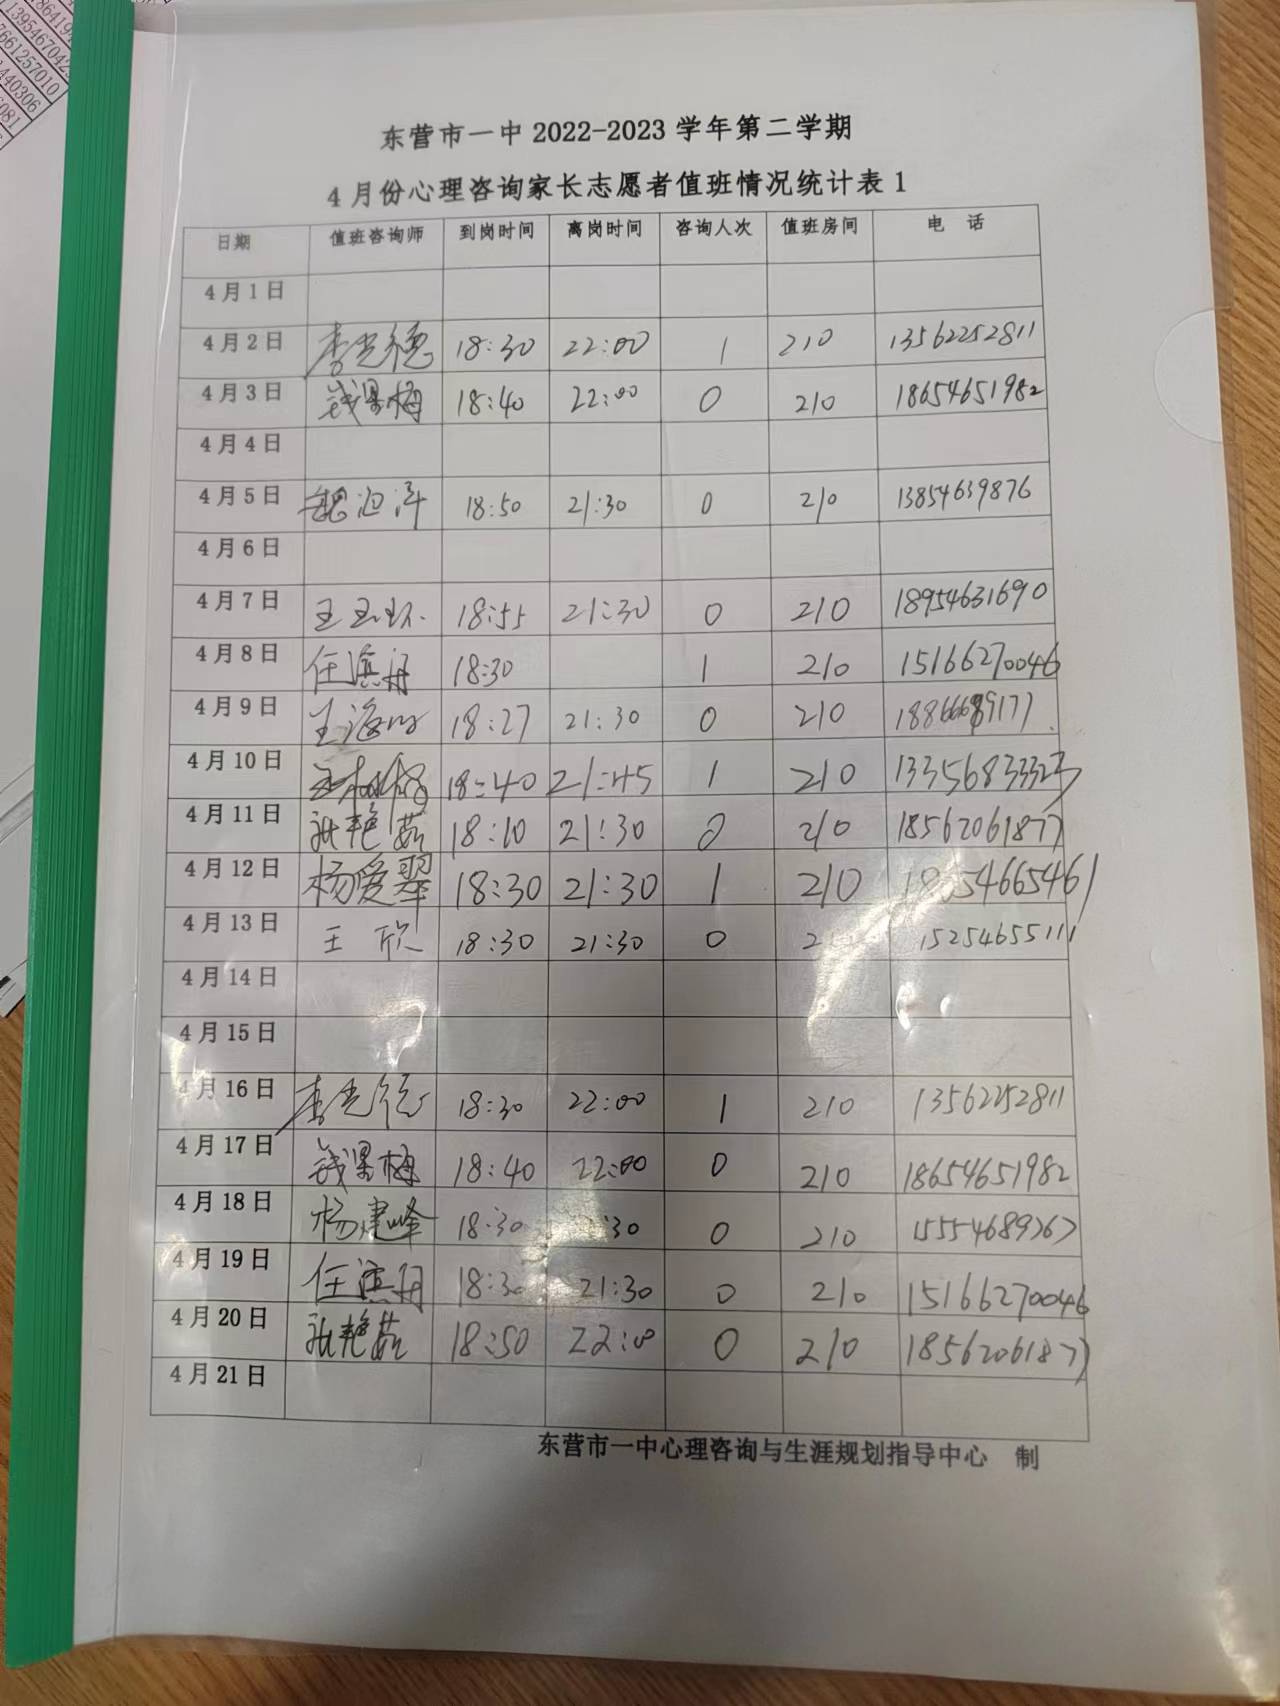 东营市一中 2022-2023 学年第二学期
4 月份心理咨询家长志愿者值班情况统计表 1
日期 值班咨询师 到岗时间 离岗时间 咨询人次 值班房间 电 话
4 月 1 日
4 月 2 日 李光德 18:30 22:00 1 210 13562252811
4 月 3 日 钱果梅 18:40 22:00 0 210 18654651982
4 月 4 日
4 月 5 日 18:50 21:30 0 210 13854639876
4 月 6 日
4 月 7 日 18:55 21:30 0 210 18954631690
4 月 8 日 任滨丹 18:30 1 210 15166270046
4 月 9 日 18:27 21:30 0 210
4 月 10 日 18:40 21:45 1 210 13356833323
4 月 11 日 张艳茹 18:10 21:30 0 210 18562061877
4 月 12 日 杨爱翠 18:30 21:30 1 210
4 月 13 日 王欣 18:30 21:30 0 15254655111
4 月 14 日
4 月 15 日
4 月 16 日 李光德 18:30 22:00 1 210 13562252811
4 月 17 日 钱果梅 18:40 22:00 0 210 18654651982
4 月 18 日 杨建峰 18:30 0 210
4 月 19 日 任滨丹 18:30 21:30 0 210 15166270046
4 月 20 日 张艳茹 18:50 22:00 0 210 18562061877
4 月 21 日
东营市一中心理咨询与生涯规划指导中心 制